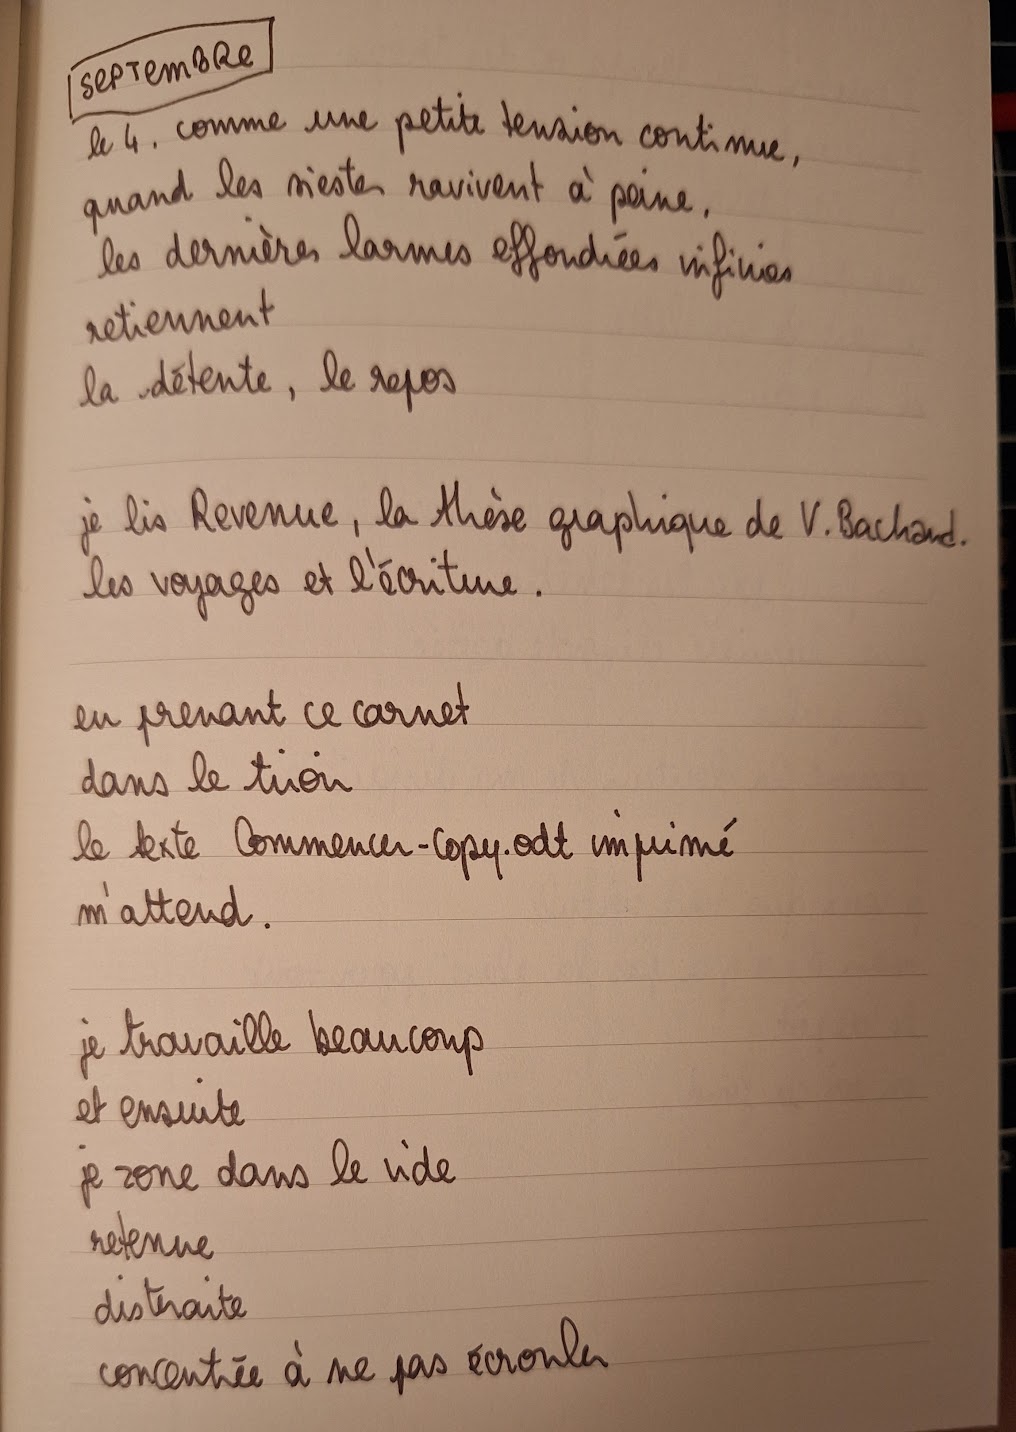 SEPTEMBRE
le 4. comme une petite tension continue,
quand les siestes ravivent à peine,
les dernières larmes effondrées infinies
retiennent
la détente, le repos
je lis Revenue, la thèse graphique de V. Bachand.
les voyages et l'écriture.
en prenant ce carnet
dans le tiroir
le texte Commencer-Copy.odt imprimé
m'attend.
je travaille beaucoup
et ensuite
je zone dans le vide
retenue
distraite
concentrée à ne pas écrouler